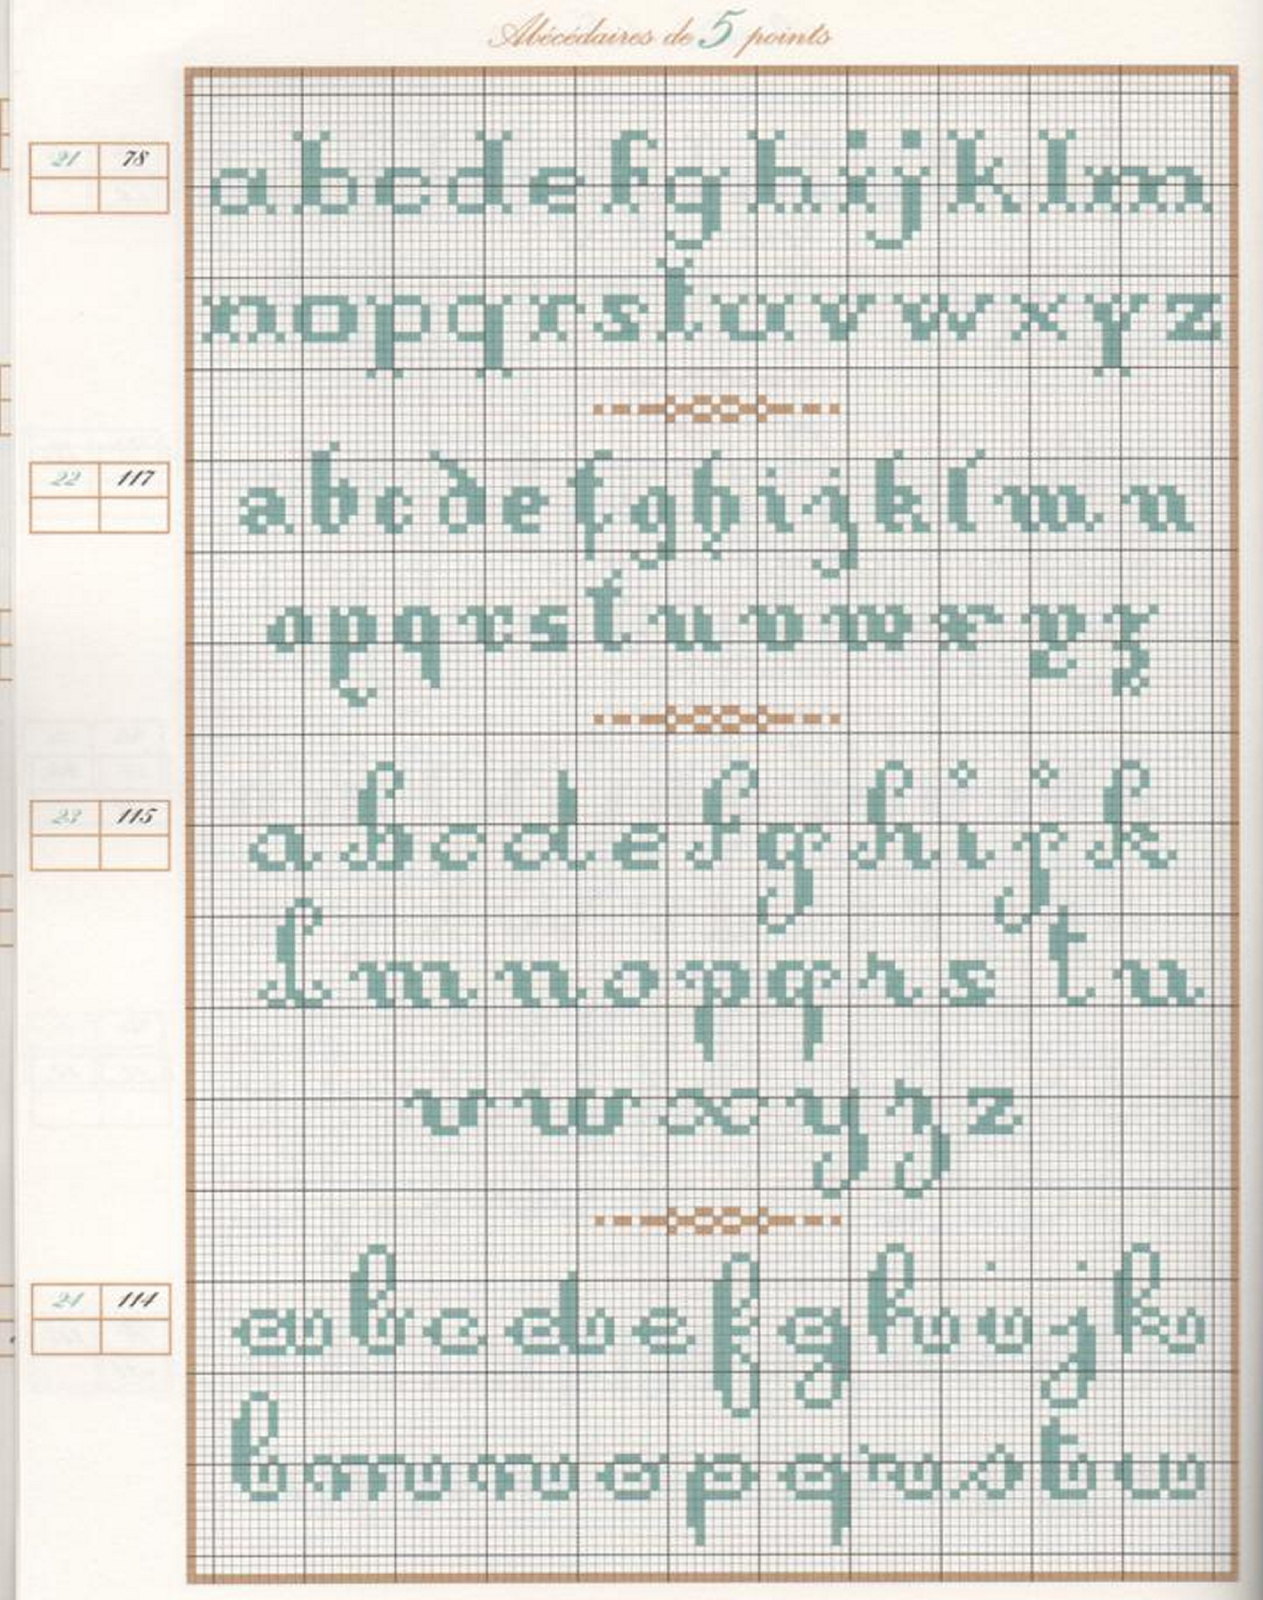 Abécédaires de 5 points
21 78
a b c d e f g h i j k l m
n o p q r s t u v w x y z
22 117
a b c d e f g h i j k l m n
o p q r s t u v w x y z
23 115
a b c d e f g h i j k
l m n o p q r s t u
v w x y z z
24 114
a b c d e f g h i j k
l m n o p q r s t u